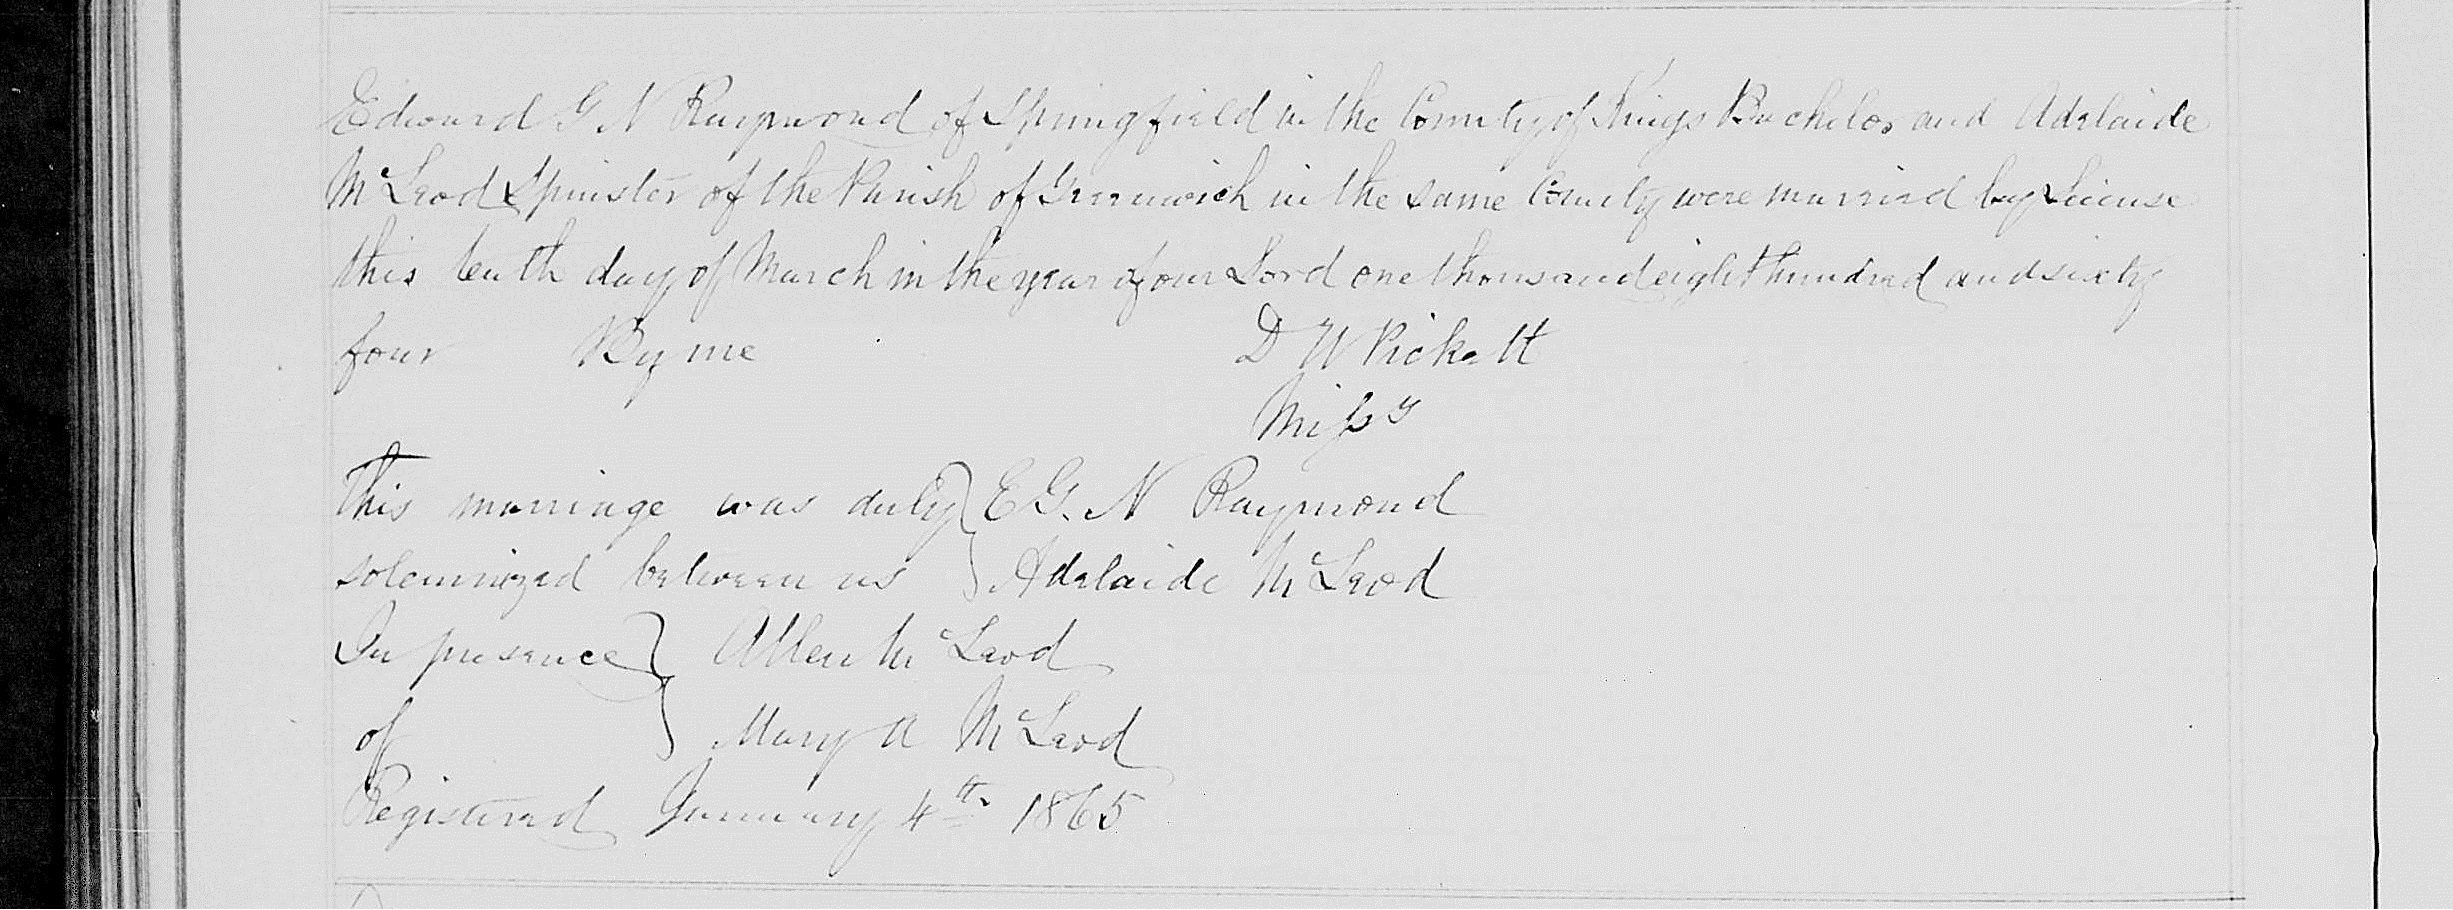 Edward G N Raymond of Springfield in the County of Kings Bachelor and Adelaide
McLeod Spinster of the Parish of Greenwich in the same County were married by License
this tenth day of March in the year of our Lord one thousand eight hundred and sixty
four By me D W Pickett
Missy
This marriage was duly } E G. N Raymond
solemnized between us } Adelaide McLeod
In presence } Allen McLeod
of } Mary A McLeod
Registered January 4th 1865